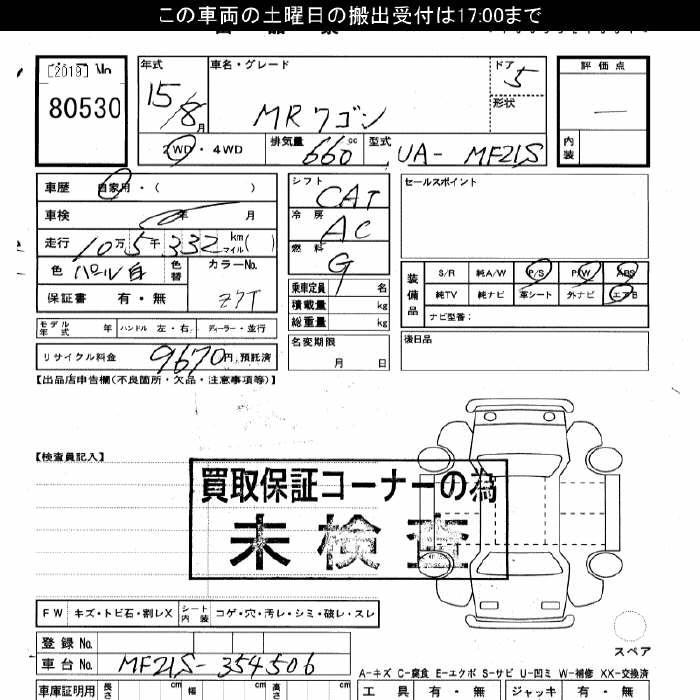 この車両の土曜日の搬出受付は17:00まで
[2019] No
80530
年式 車名・グレード ドア 評価点
15/8月 MRワゴン 5
形状
2WD・4WD 排気量 660cc 型式 UA- MF21S 内装
車歴 自家用・( )
シフト CAT
セールスポイント
車検 年 月
冷房 AC
走行 10万5千332km マイル( )
燃料 G
色 パール白 色替 カラーNo. Z7T
乗車定員 名
装備品 S/R 純A/W P/S P/W ABS
保証書 有・無
積載量 kg
純TV 純ナビ 革シート 外ナビ エアB
総重量 kg
ナビ型番:
モデル年式 年 ハンドル 左・右 ディーラー・並行
名変期限 月 日
後日品
リサイクル料金 9670円,預託済
【出品店申告欄(不良箇所・欠品・注意事項等)】
【検査員記入】
買取保証コーナーの為
未検査
FW キズ・トビ石・割レX シート内装 コゲ・穴・汚レ・シミ・破レ・スレ
スペア
登録No.
車台No. MF21S-354506
A-キズ C-腐食 E-エクボ S-サビ U-凹ミ W-補修 XX-交換済
車庫証明用 長さ cm 幅 cm 高さ cm
工具 有・無 ジャッキ 有・無